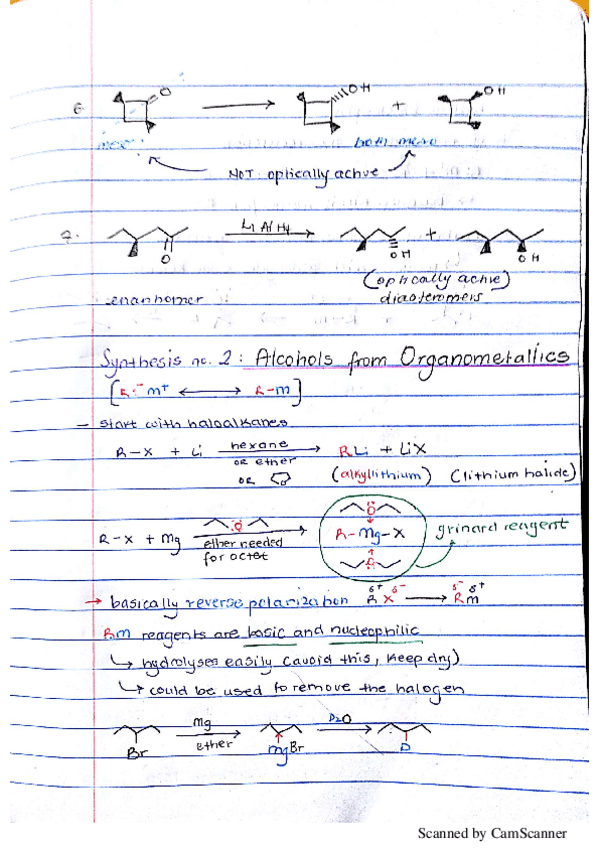 6. O → OH + OH
meso both meso
NOT optically active
7. LiAlH4 +
O OH OH
(optically active)
enantiomer diasteromers
Synthesis no. 2: Alcohols from Organometallics
[R:⁻ m⁺ ⟷ R-m]
- start with haloalkanes
R-X + Li hexane → RLi + LiX
or ether
OR O (alkyllithium) (lithium halide)
O O
R-X + Mg → R-Mg-X grinard reagent
ether needed
for octet O
→ basically reverse polarization δ⁺R Xδ⁻ → δ⁻R mδ⁺
Rm reagents are basic and nucleophilic
↳ hydrolyses easily (avoid this, keep dry)
↳ could be used to remove the halogen
Mg D2O
Br ether MgBr D
Scanned by CamScanner